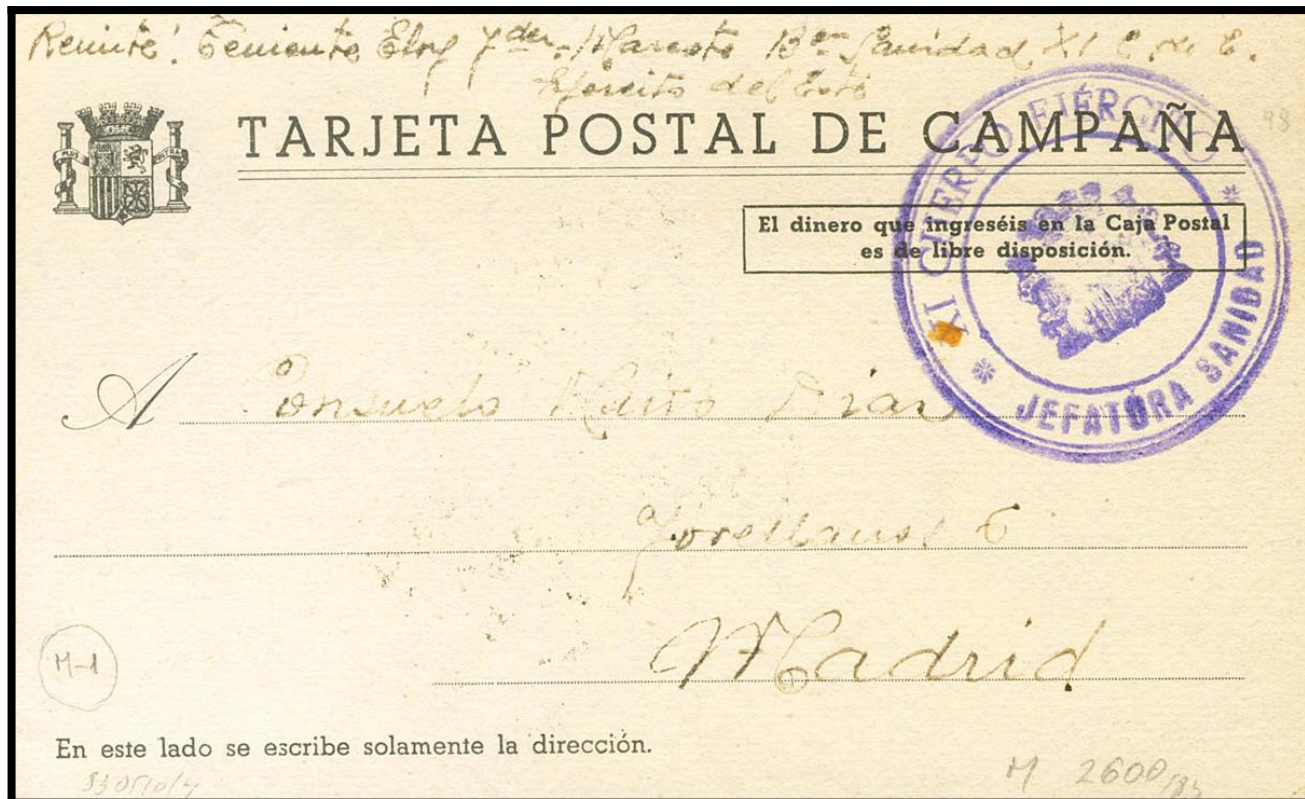 Remite: Teniente Eloy Maroto Bon Sanidad XI C. de E.
Ejército del Este
TARJETA POSTAL DE CAMPAÑA
98
El dinero que ingreséis en la Caja Postal
es de libre disposición.
XI CUERPO EJÉRCITO
* JEFATURA SANIDAD *
A Consuelo Diaz
6
Madrid
M-1
En este lado se escribe solamente la dirección.
M 2600